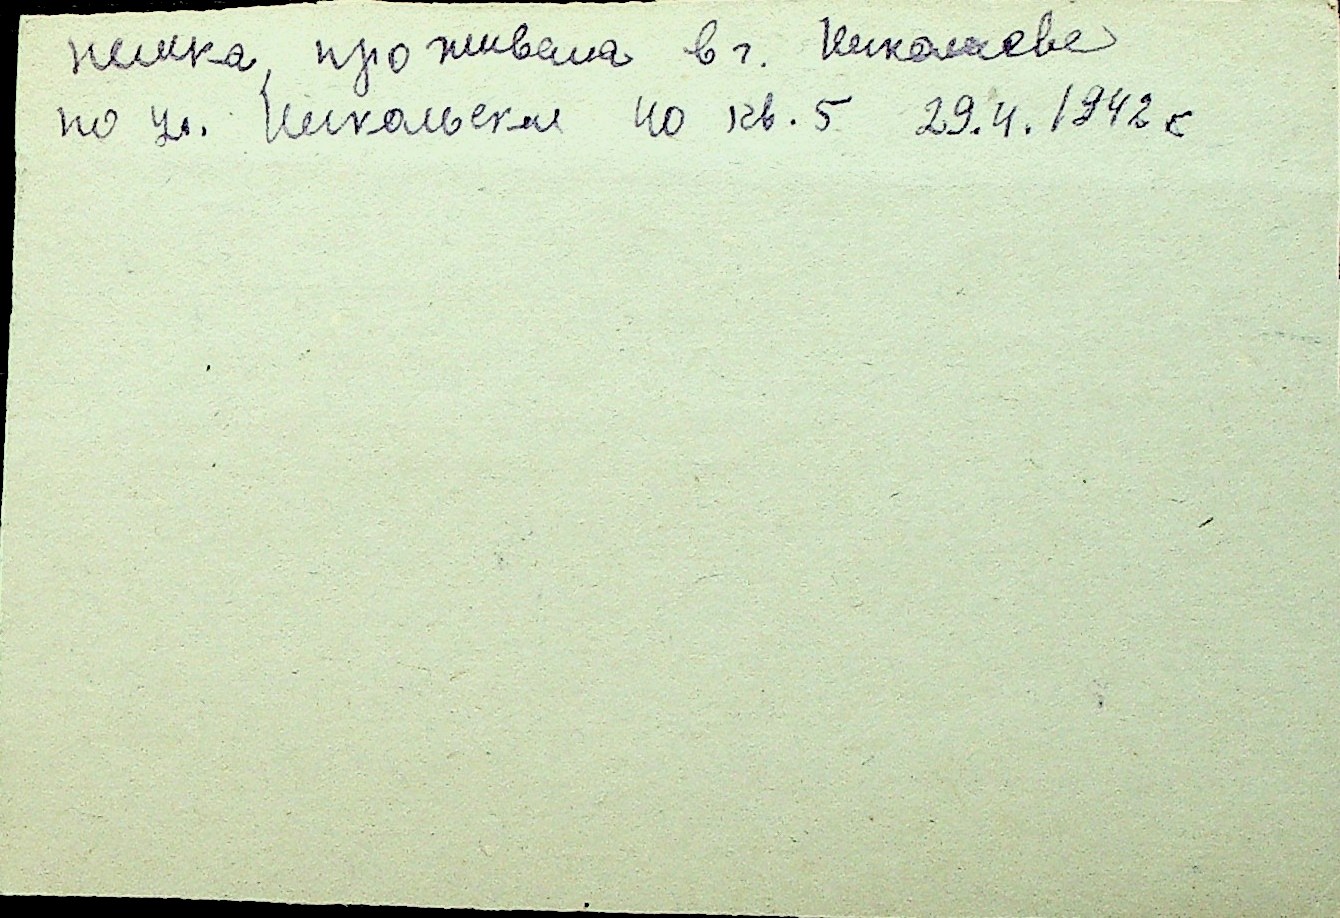 немка, проживала в г. Николаеве
по ул. Никольская 40 кв. 5 29.4.1942 г